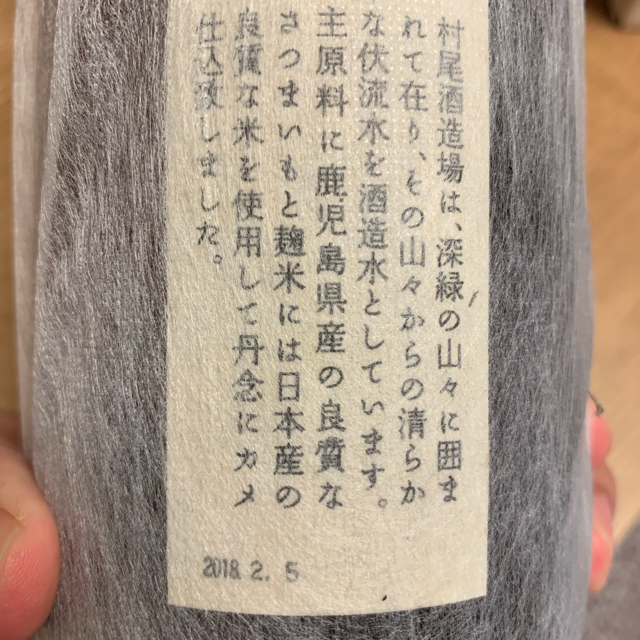 村尾酒造場は、深緑の山々に囲ま
れて在り、その山々からの清らか
な伏流水を酒造水としています。
主原料に鹿児島県産の良質な
さつまいもと麹米には日本産の
良質な米を使用して丹念にカメ
仕込致しました。
2018. 2. 5